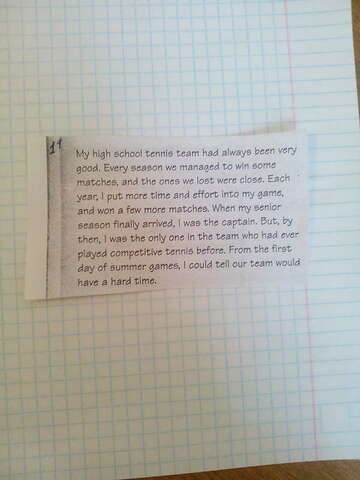 14
My high school tennis team had always been very
good. Every season we managed to win some
matches, and the ones we lost were close. Each
year, I put more time and effort into my game,
and won a few more matches. When my senior
season finally arrived, I was the captain. But, by
then, I was the only one in the team who had ever
played competitive tennis before. From the first
day of summer games, I could tell our team would
have a hard time.